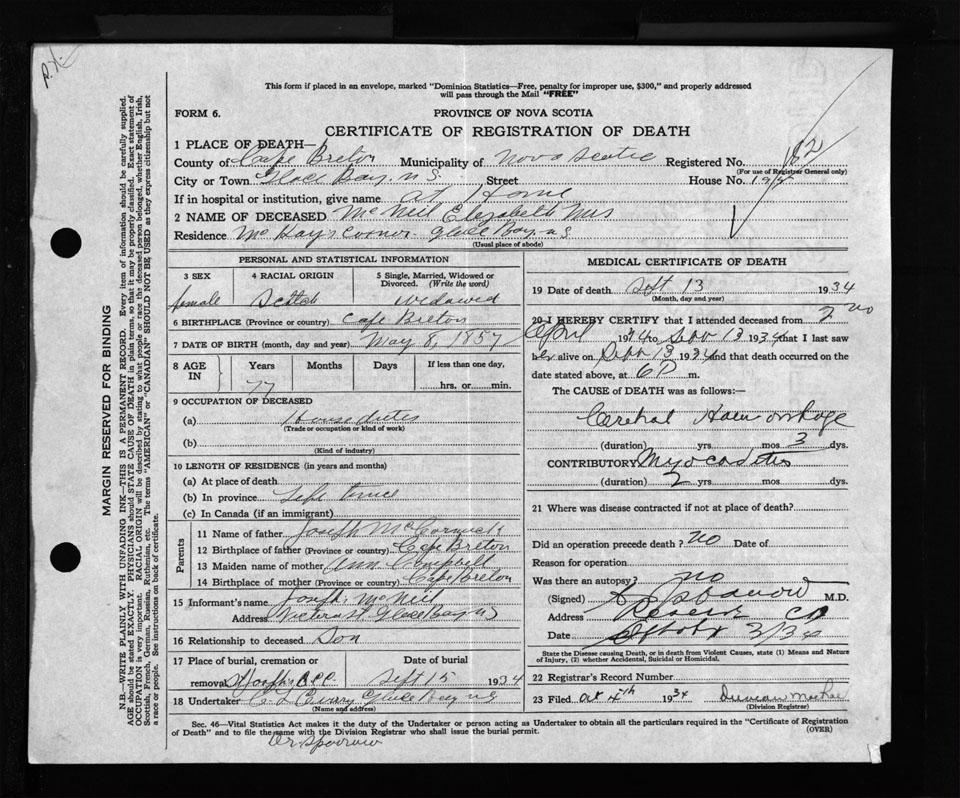 P.X.
This form if placed in an envelope, marked "Dominion Statistics—Free, penalty for improper use, $300," and properly addressed
will pass through the Mail "FREE"
FORM 6.
PROVINCE OF NOVA SCOTIA
CERTIFICATE OF REGISTRATION OF DEATH
1 PLACE OF DEATH—
County of Cape Breton Municipality of Nova Scotia Registered No. 182
(For use of Registrar General only)
City or Town Glace Bay. N.S. Street House No.
If in hospital or institution, give name at Home
2 NAME OF DECEASED McNeil Elezabeth Mrs
Residence McKays corner. Glace Bay. ns
(Usual place of abode)
PERSONAL AND STATISTICAL INFORMATION
3 SEX 4 RACIAL ORIGIN 5 Single, Married, Widowed or Divorced. (Write the word)
female Scotch widowed
6 BIRTHPLACE (Province or country) Cape Breton
7 DATE OF BIRTH (month, day and year) May 8, 1857
8 AGE IN Years Months Days If less than one day,
77 hrs. or min.
9 OCCUPATION OF DECEASED
(a) House duties
(Trade or occupation or kind of work)
(b)
(Kind of industry)
10 LENGTH OF RESIDENCE (in years and months)
(a) At place of death
(b) In province Life time
(c) In Canada (if an immigrant)
Parents
11 Name of father Joseph McCormack
12 Birthplace of father (Province or country) Cape Breton
13 Maiden name of mother Ann Campbell
14 Birthplace of mother (Province or country) Cape breton
15 Informant's name Joseph McNeil
Address St Glace Bay ns
16 Relationship to deceased Son
17 Place of burial, cremation or Date of burial
removal Sept 15 1934
18 Undertaker Glace Bay ns
(Name and address)
MEDICAL CERTIFICATE OF DEATH
19 Date of death Sept 13 1934
(Month, day and year)
20 I HEREBY CERTIFY that I attended deceased from
April 1934 to Sept 13 1934 that I last saw
her alive on Sept 13 1934 and that death occurred on the
date stated above, at 6 P m.
The CAUSE OF DEATH was as follows:—
Cerebral Haemorrhage
(duration) yrs mos 3 dys.
CONTRIBUTORY Myocarditis
(duration) 2 yrs mos dys.
21 Where was disease contracted if not at place of death?
Did an operation precede death? no Date of
Reason for operation
Was there an autopsy? no
(Signed) Sparrow M.D.
Address Reserve CB
Date October 3/34
State the Disease causing Death, or in death from Violent Causes, state (1) Means and Nature
of Injury, (2) whether Accidental, Suicidal or Homicidal.
22 Registrar's Record Number
23 Filed Oct 4th 1934 Duncan MacRae
(Division Registrar)
Sec. 46—Vital Statistics Act makes it the duty of the Undertaker or person acting as Undertaker to obtain all the particulars required in the "Certificate of Registration
of Death" and to file the same with the Division Registrar who shall issue the burial permit.
(OVER)
Dr Sparrow
MARGIN RESERVED FOR BINDING
N.B.—WRITE PLAINLY WITH UNFADING INK—THIS IS A PERMANENT RECORD. Every item of information should be carefully supplied.
AGE should be stated EXACTLY. PHYSICIANS should STATE CAUSE OF DEATH in plain terms, so that it may be properly classified. Exact statement of
OCCUPATION is very important. RACIAL ORIGIN will be described by stating to what people or race the deceased person belonged, whether English, Irish,
Scottish, French, German, Russian, Ruthenian, etc. The terms "AMERICAN" or "CANADIAN" SHOULD NOT BE USED as they express citizenship but not
a race or people. See instructions on back of certificate.